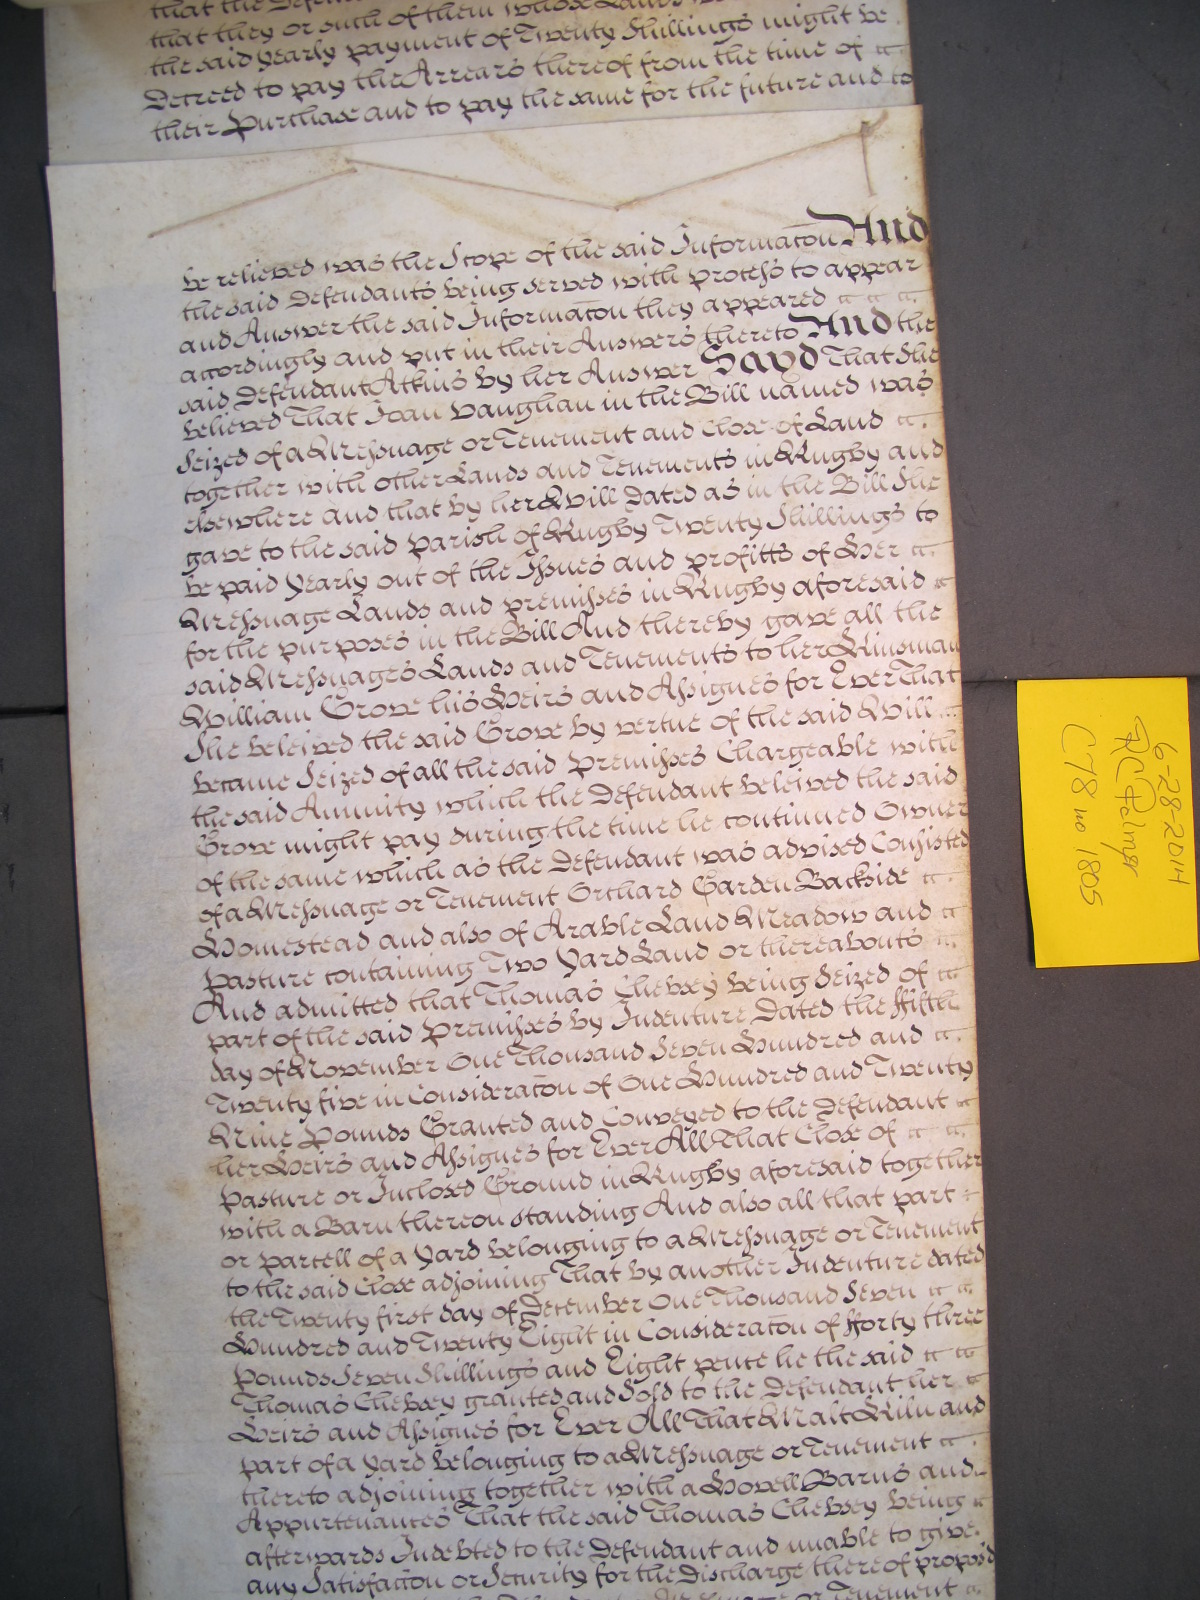 that the Defen
that they or such of them whose Lands we
the said yearly payment of Twenty Shillings might be
Decreed to pay the Arrears thereof from the time of
their Purchase and to pay the same for the future and to
be relieved was the Scope of the said Informac̃on And
the said Defendants being served with process to appear
and Answer the said Informac̃on they appeared
accordingly and put in their Answers thereto And the
said Defendant Atkins by her Answer Sayd That She
believed That Joan Vaughan in the Bill named was
Seized of a Messuage or Tenement and Close of Land
together with other Lands and Tenements in Rugby and
elsewhere and that by her Will Dated as in the Bill She
gave to the said parish of Rugby Twenty Shillings to
be paid yearly out of the Issues and profitts of Her
Messuage Lands and premisses in Rugby aforesaid
for the purposes in the Bill And thereby gave all the
said Messuages Lands and Tenements to her Kinsman
William Grove his Heirs and Assignes for Ever That
She beleived the said Grove by vertue of the said Will
became Seized of all the said Premisses Chargeable with
the said Annuity which the Defendant beleived the said
Grove might pay during the time he continued Owner
of the same which as the Defendant was advised Consisted
of a Messuage or Tenement Orchard Garden Backside
Homestead and also of Arable Land Meadow and
Pasture containing Two Yard Land or thereabouts
And admitted that Thomas Chewsey being Seized of
part of the said Premisses by Indenture Dated the ffifth
day of November One Thousand Seven Hundred and
Twenty five in Considerac̃on of One Hundred and Twenty
Nine Pounds Granted and Conveyed to the Defendant
her Heirs and Assignes for Ever All That Close of
Pasture or Inclosed Ground in Rugby aforesaid together
with a Barn thereon standing And also all that part
or parcell of a Yard belonging to a Messuage or Tenement
to the said Close adjoining That by another Indenture dated
the Twenty first day of December One Thousand Seven
Hundred and Twenty Eight in Considerac̃on of fforty three
Pounds Seven Shillings and Eight pence he the said
Thomas Chewsey granted and Sold to the Defendant her
Heirs and Assignes for Ever All That Malt Kiln and
part of a Yard belonging to a Messuage or Tenement
thereto adjoining together with a Hovell Barns and
Appurtenances That the said Thomas Chewsey being
afterwards Indebted to the Defendant and unable to give
any Satisfac̃on or Security for the Discharge thereof propos'd
or Tenement
6-28-2014
C78 no 1885